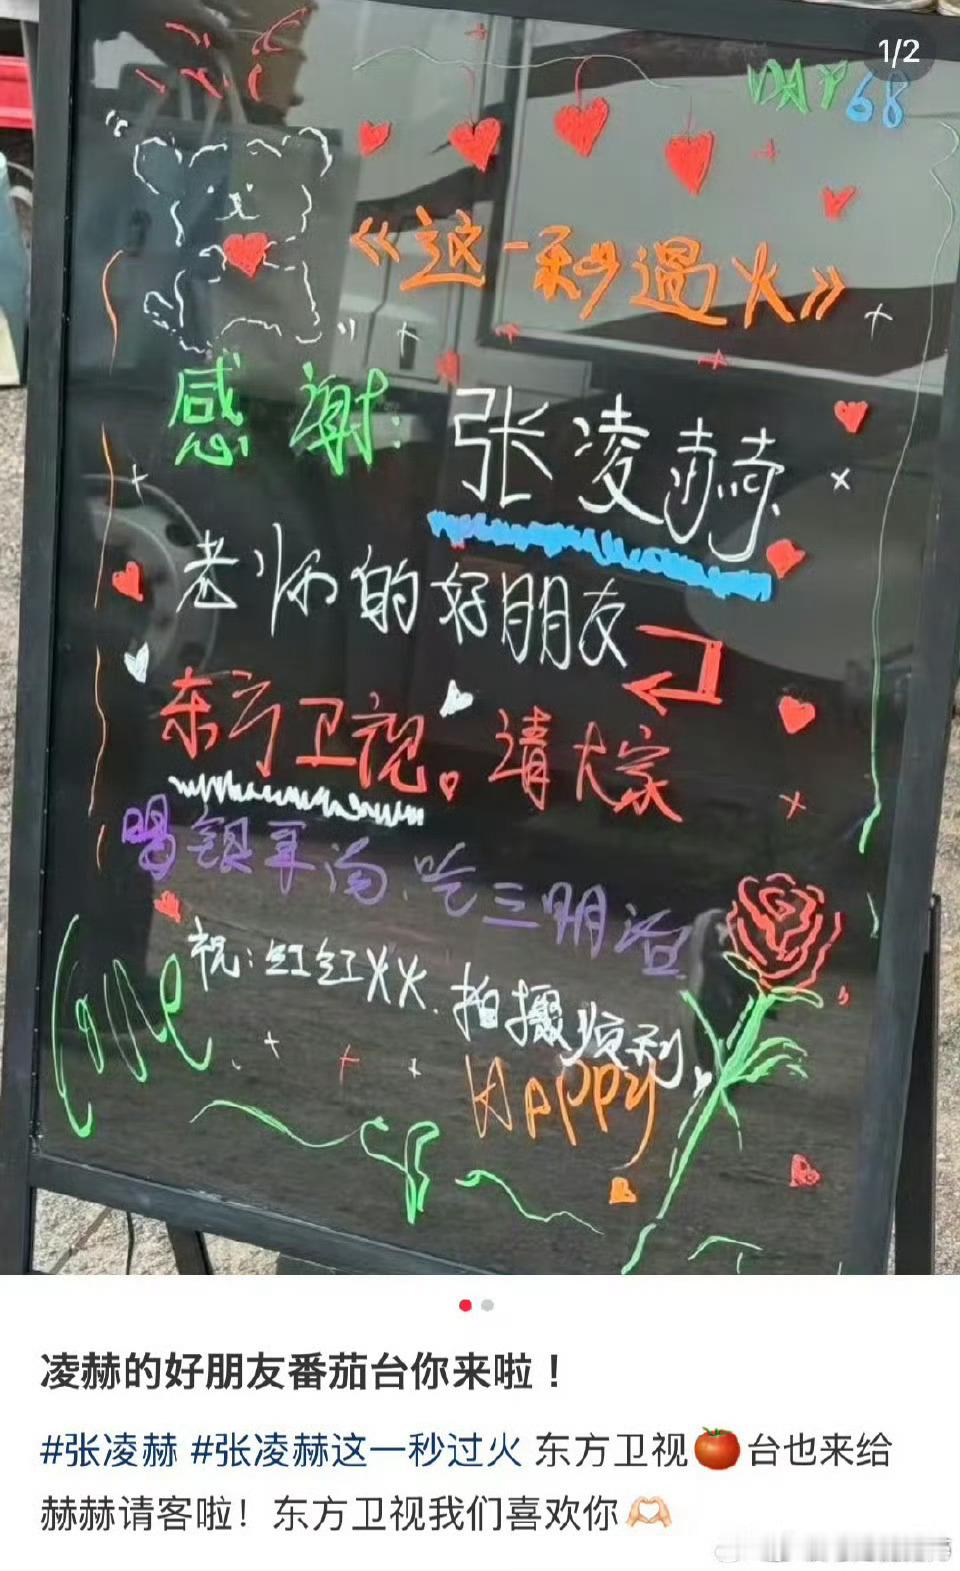 1/2
DAY 68
《这一秒过火》
感谢:张凌赫
老师的好朋友
东方卫视。请大家
喝银耳汤.吃三明治
祝:红红火火.拍摄顺利
Love
HAPPY
凌赫的好朋友番茄台你来啦！
#张凌赫 #张凌赫这一秒过火 东方卫视🍅台也来给
赫赫请客啦！东方卫视我们喜欢你🫶🏻